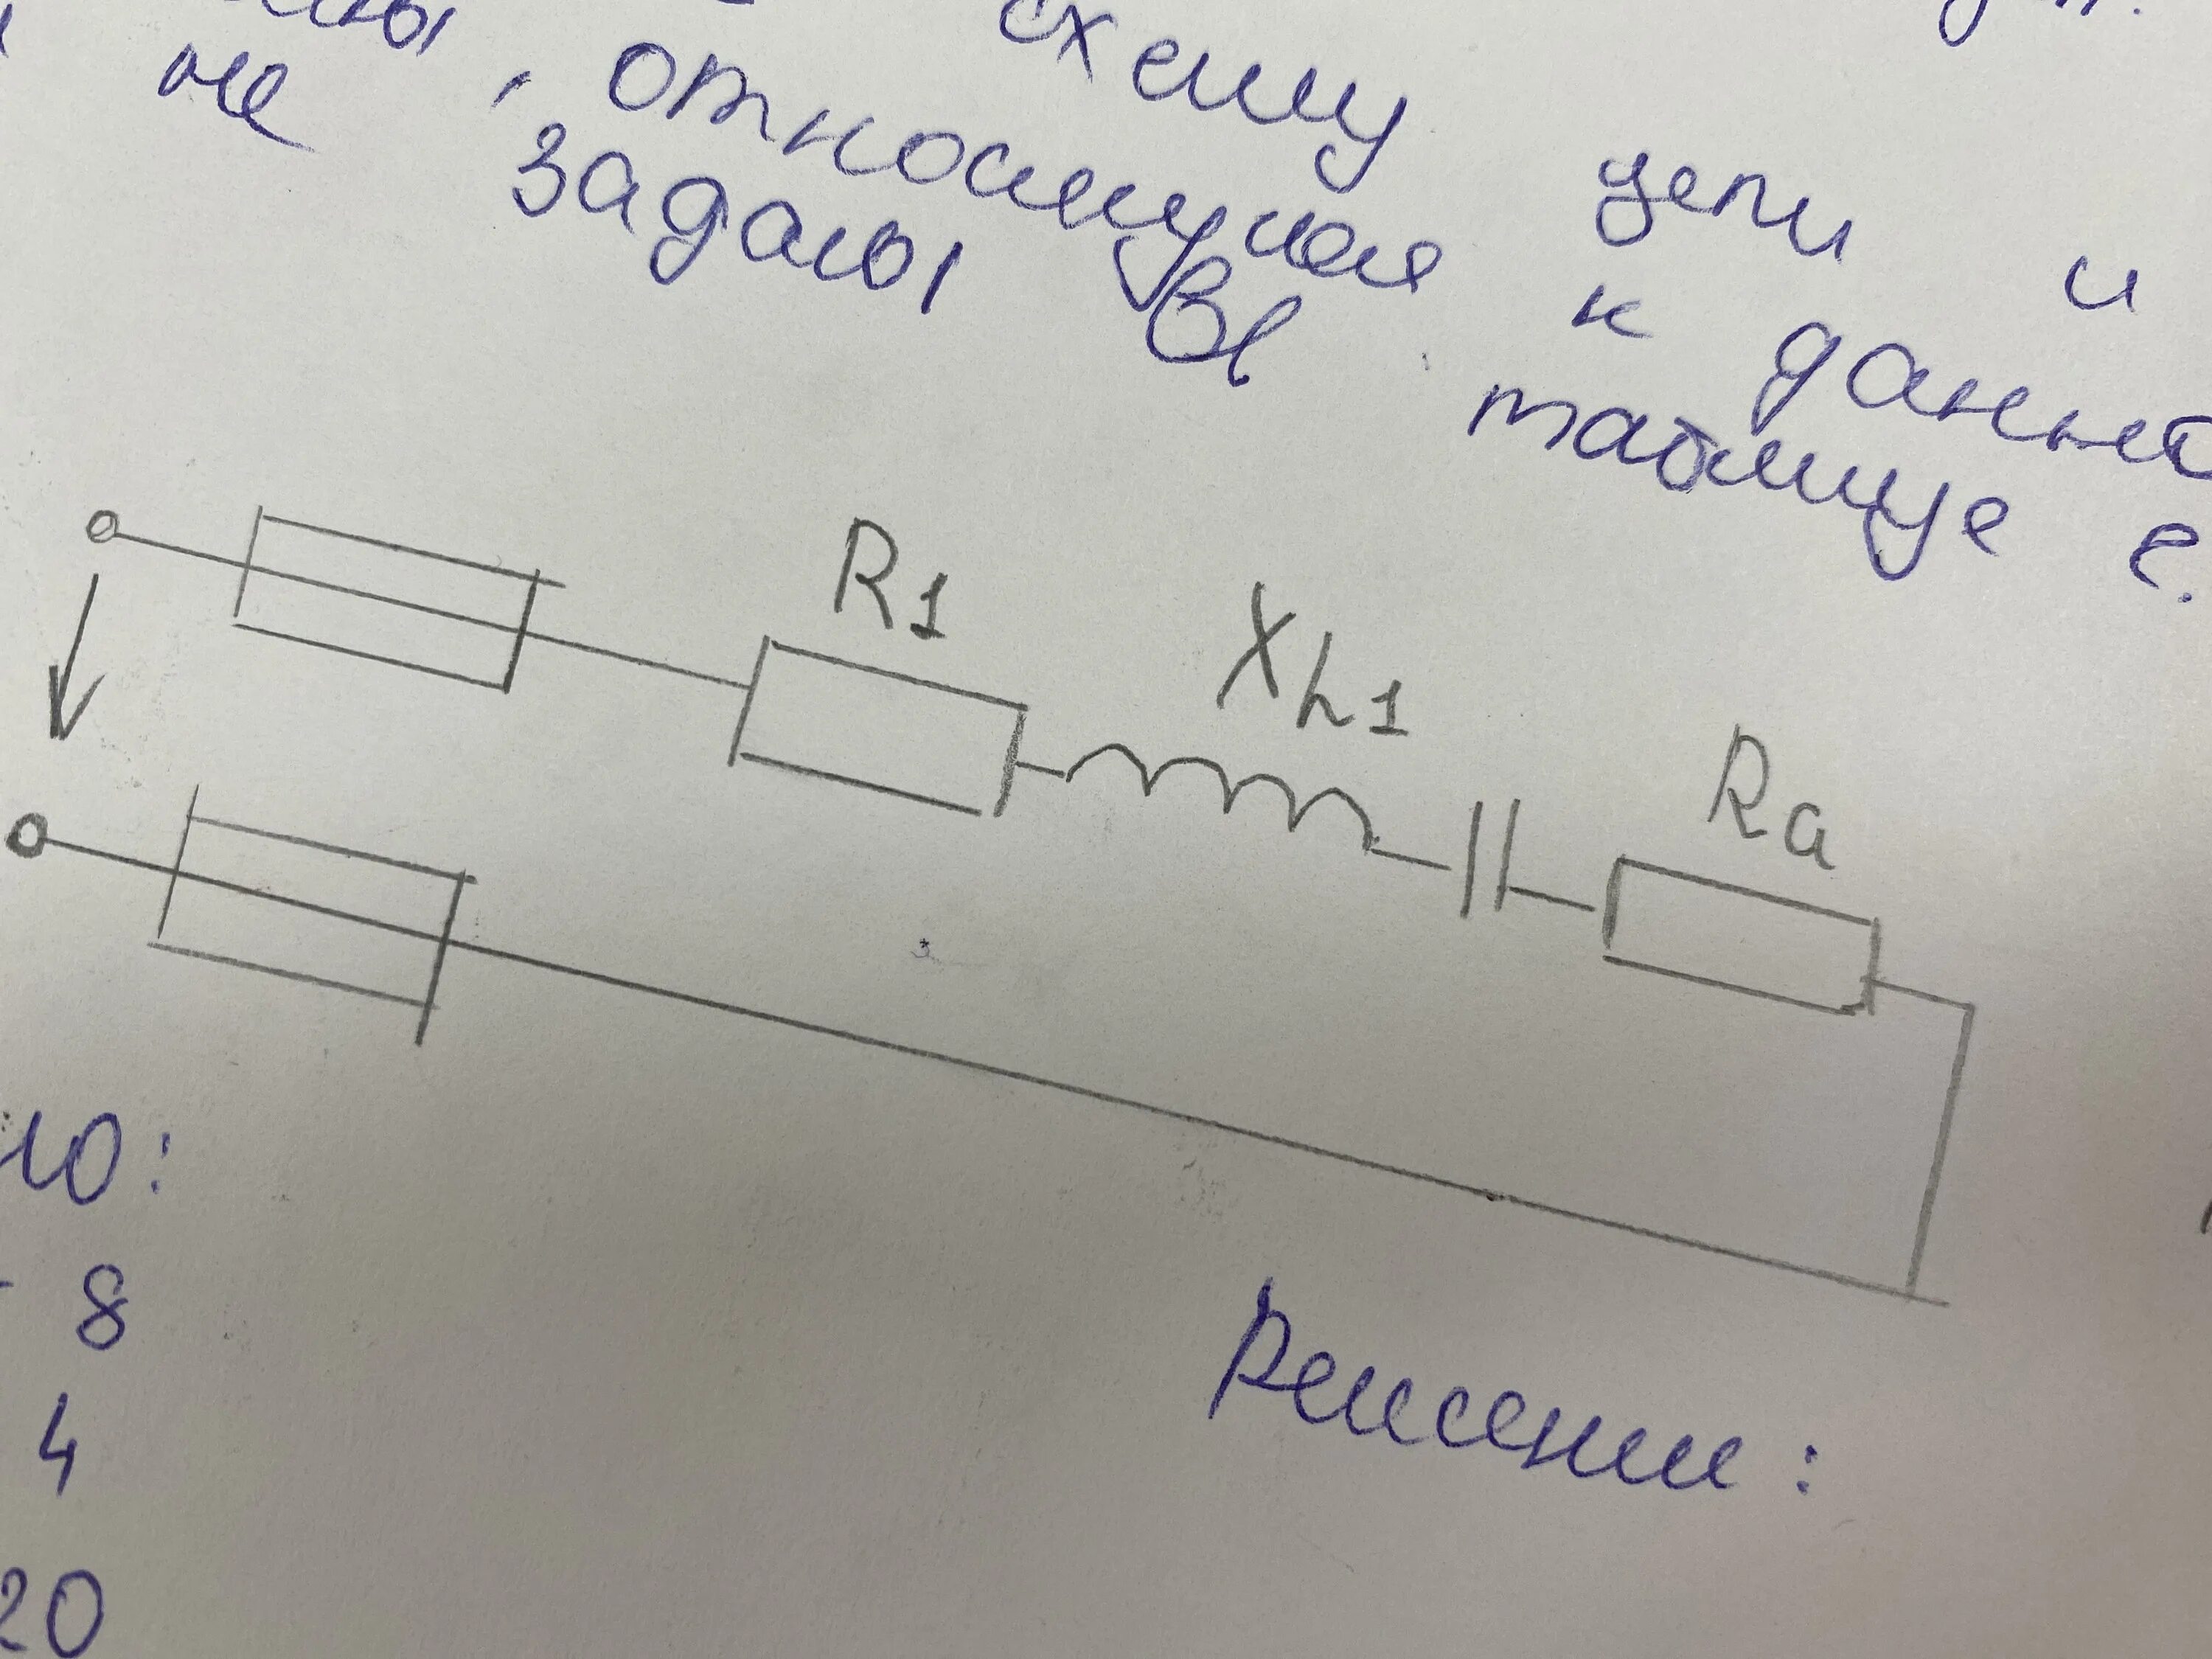 схему цепи и
, относящуюся к данно
не заданы в таблице 2.
R1
XL1
Ra
но:
8
4
20
Решение: